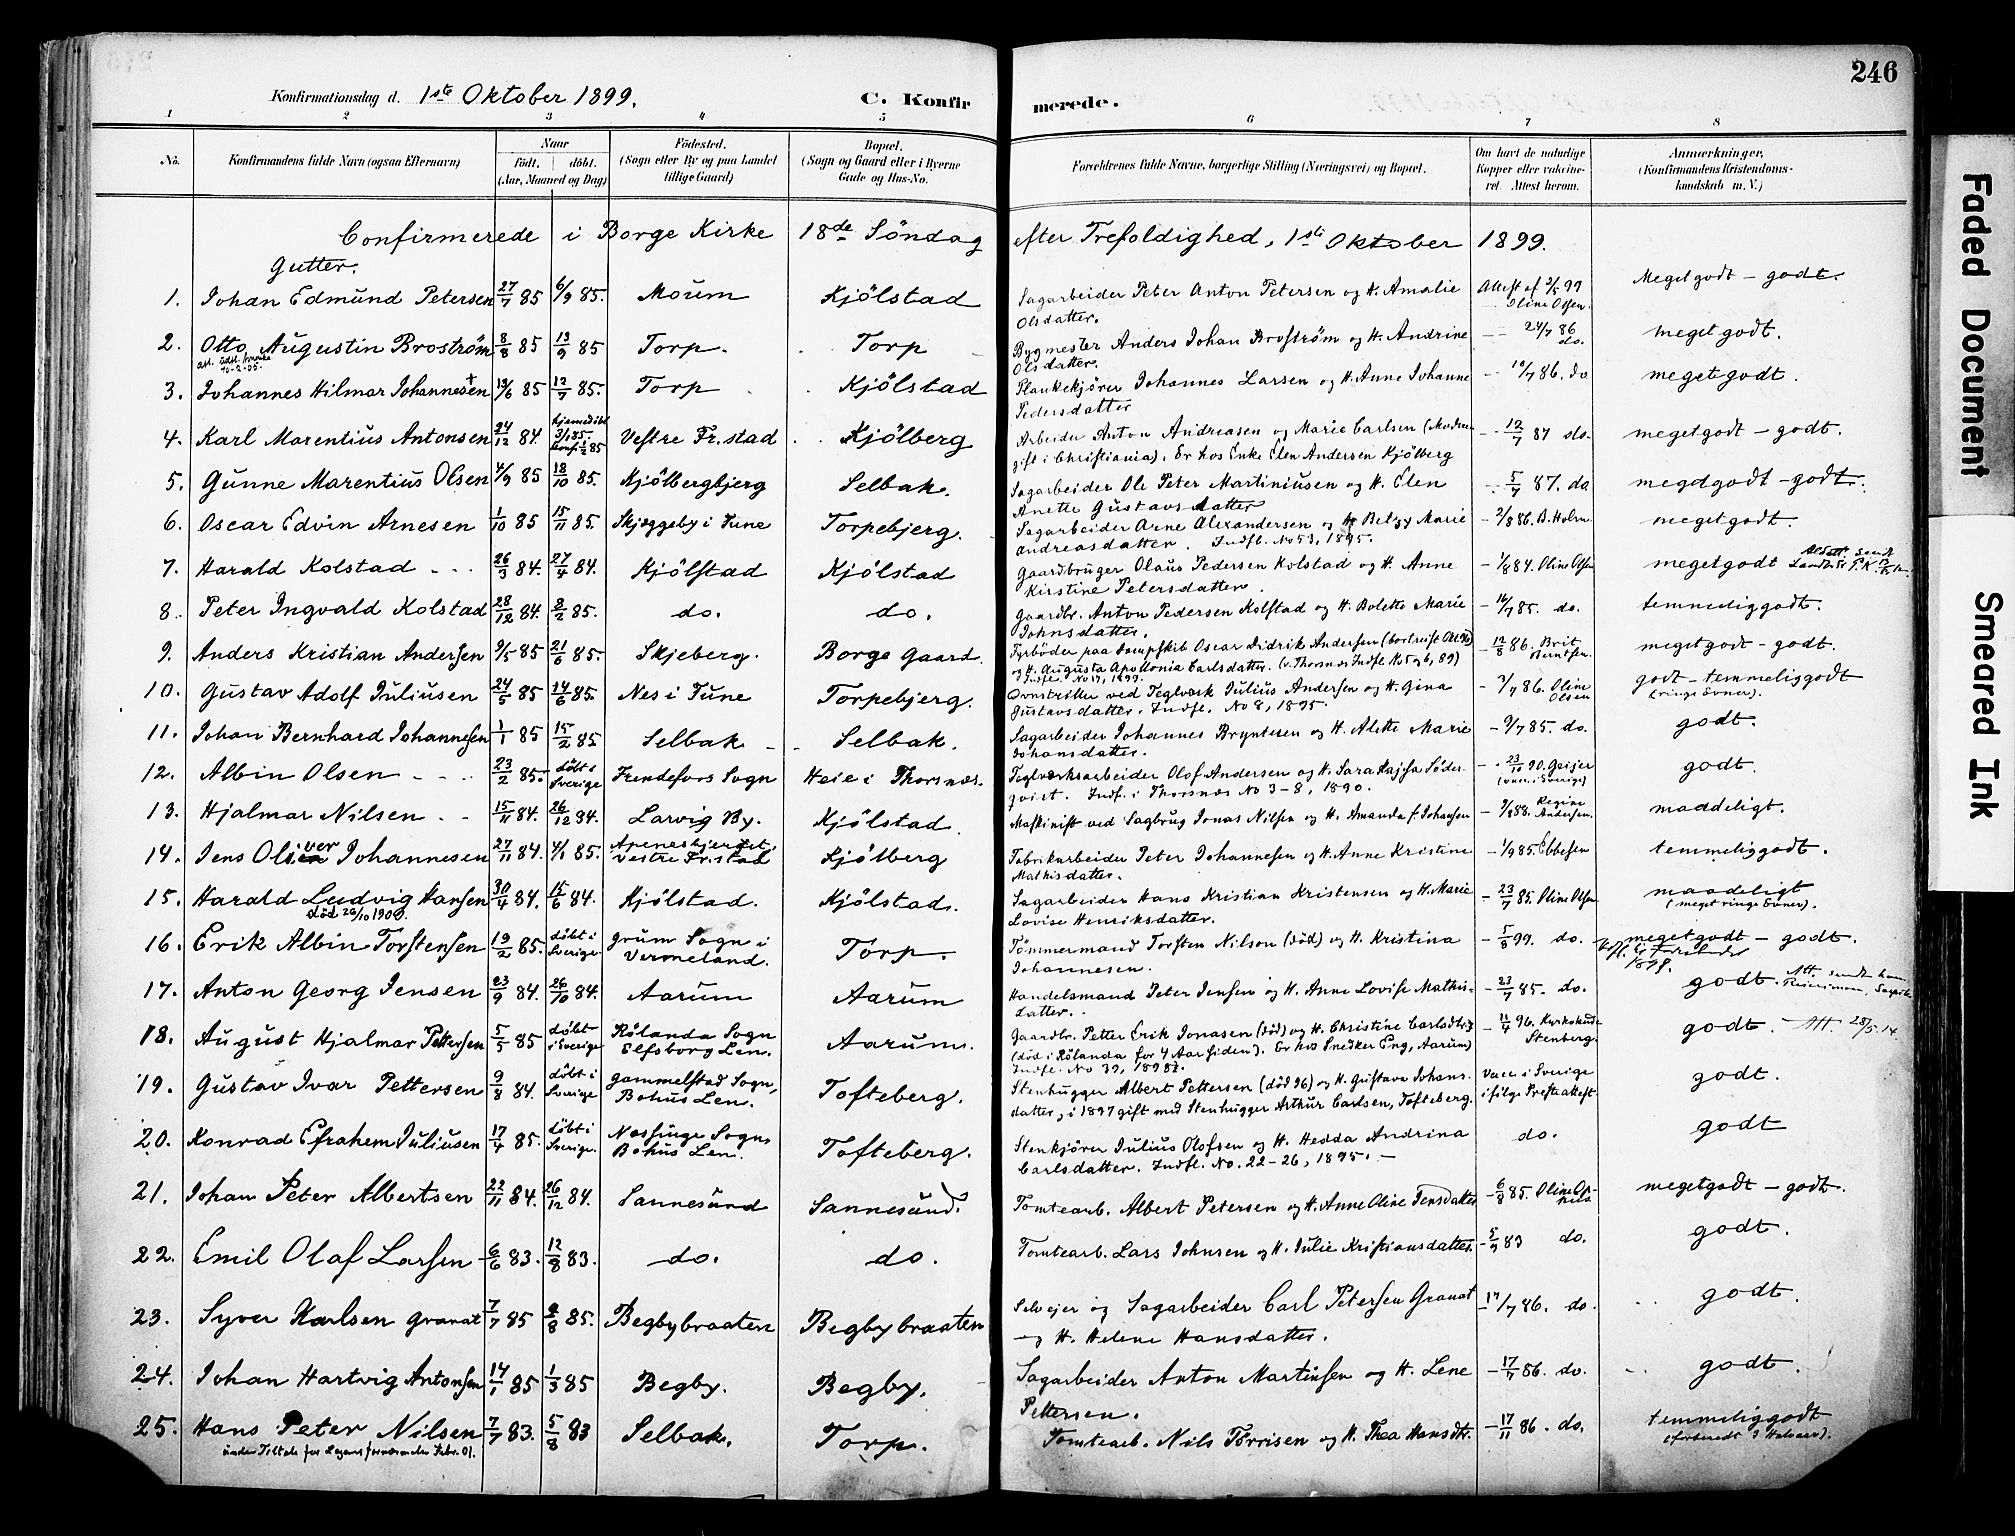 246
Konfirmationsdag d. 1ste Oktober 1899. C. Konfirmerede.
1 2 3 4 5 6 7 8
No. Konfirmandens fulde Navn (ogsaa Efternavn) Naar født, døbt. (Aar, Maaned og Dag) Fødested. (Sogn eller By og paa Landet tillige Gaard) Bopæl. (Sogn og Gaard eller i Byerne Gade og Hus-No. Forældrenes fulde Navne, borgerlige Stilling (Næringsvei) og Bopæl. Om havt de naturlige Kopper eller vaccineret. Attest herom. Anmærkninger, (Konfirmandens Kristendomskundskab m. V.)
Confirmerede i Borge Kirke 18de Söndag efter Trefoldighed, 1ste Oktober 1899.
Gutter.
1. Johan Edmund Petersen 27/7 85 6/9 85. Moum Kjölstad Sagarbeider Peter Anton Petersen og H. Amalie Olsdatter. Attest af 3/5 99 Oline Olsen. Meget godt - godt.
2. Otto Augustin Broström 8/8 85 13/9 85 Torp. Torp Bygmester Anders Johan Broström og H. Andrine Olsdatter. - 24/7 86 do. meget godt.
3. Johannes Hilmar Johannesen 19/6 85 12/7 85. Torp Kjölstad Plankekjörer Johannes Larsen og H. Anne Johanne Pedersdatter - 10/7 86. do meget godt.
4. Karl Marentius Antonsen 24/12 84. hjemmedöbt Vestre Fr.stad Kjölberg Arbeider Anton Andreasen og Marie Carlsen (Moderen gift i Christiania). Er hos Enke Elen Andersen Kjölberg - 12/7 87 do. meget godt - godt.
5. Gunne Marentius Olsen 4/9 85 18/10 85. Kjölbergbjerg Selbak. Sagarbeider Ole Peter Martiniusen og H. Elen Anette Gustavsdatter - 5/7 87. do meget godt - godt.
6. Oscar Edvin Arnesen 1/10 85 15/11 85. Skjæggeby i Tune Torpebjerg. Sagarbeider Arne Alexandersen og H. Betzy Marie Andreasdatter. Indfl. No 53, 1895. - 2/8 86. B. Holm meget godt.
7. Harald Kolstad 26/3 84. 27/4 84. Kjölstad Kjölstad Gaardbruger Olaus Pedersen Kolstad og H. Anne Kirstine Petersdatter. - 1/8 84. Oline Olsen meget godt
8. Peter Ingvald Kolstad 28/12 84. 8/2 85. do. do. Gaardbr. Anton Pedersen Kolstad og H. Bolette Marie Johnsdatter. - 16/7 85. do. temmelig godt.
9. Anders Kristian Andersen 9/5 85 21/6 85. Skjeberg. Borge Gaard. Fyrböder paa Dampskib Oscar Didrik Andersen og H. Augusta Apollonia Carlsdatter. - 12/8 86. meget godt - godt.
10. Gustav Adolf Juliusen 24/5 85 14/6 85. Nes i Tune Torpebjerg. Ovnstriller ved Teglværk Julius Andersen og H. Gina Gustavsdatter. Indfl. No 8, 1895. - 3/7 86. Oline Olsen godt - temmelig godt (ringe Evner).
11. Johan Bernhard Johannesen 1/1 85 15/2 85 Selbak Selbak. Sagarbeider Johannes Bryntesen og H. Alette Marie Johansdatter. - 9/7 85. do. godt.
12. Albin Olsen 23/2 85. döbt i Sverige Frendefors Sogn Heie i Thorsnæs. Teglværksarbeider Olof Andersen og H. Sara Kajsa Söderqvist. Indfl. i Thorsnæs No 3-8, 1890. - 23/10 90. Geijer (vacc. i Sverige) godt.
13. Hjalmar Nilsen 15/11 84. 26/12 84. Larvig By. Kjölstad. Maskinist ved Sagbrug Jonas Nilsen og H. Amanda f. Johansen - 3/8 88. Regine Andersen. maadeligt.
14. Jens Oliver Johannesen 27/11 84. 4/1 85. Apenesbjerget, Vestre Fr.stad Kjölberg Fabrikarbeider Peter Johannesen og H. Anne Kristine Mathisdatter. - 1/9 85. Ebbesen temmelig godt.
15. Harald Ludvig Hansen 30/4 84. 15/6 84. Kjölstad. Kjölstad. Sagarbeider Hans Kristian Kristensen og H. Marie Lovise Henriksdatter. - 23/7 85. Oline Olsen maadeligt (meget ringe Evner).
16. Erik Albin Torstensen 19/2 85. döbt i Sverige Grum Sogn i Vermeland. Torp. Tömmermand Torsten Nilson (död) og H. Kristina Johannesen. - 5/8 99. do. meget godt - godt.
17. Anton Georg Jensen 23/9 84. 26/10 84. Aarum Aarum Handelsmand Peter Jensen og H. Anne Lovise Mathisdatter. - 23/7 85. do. godt.
18. August Hjalmar Pettersen 5/5 85 döbt i Sverige Rölanda Sogn Elfsborg Len. Aarum. Gaardbr. Petter Erik Jonasen (död) og H. Christine Carlsdtr. (död i Rölanda for 4 Aar siden). Er hos Snedker Eng, Aarum) Indfl. No 39, 1898. - 11/4 96. Stenberg. godt. Att. 28/5.14.
19. Gustav Ivar Pettersen 9/8 84. döbt i Sverige Gammelstad Sogn, Bohus Len. Tofteberg. Stenhugger Albert Pettersen (död 96) og H. Gustava Johansdatter, i 1897 gift med Stenhugger Arthur Carlsen, Tofteberg. Vacc i Sverige ifölge Presteattest godt.
20. Konrad Efrahem Juliusen 17/4 85. döbt i Sverige. Næssinge Sogn, Bohus Len. Tofteberg. Stenkjörer Julius Olofsen og H. Hedda Andrina Carlsdatter. Indfl. No. 22-26, 1895. - do. godt
21. Johan Peter Albertsen 22/11 84. 26/12 84. Sannesund Sannesund. Tomtearb. Albert Petersen og H. Anne Oline Jensdatter - 6/8 85. meget godt - godt.
22. Emil Olaf Larsen 6/6 83. 12/8 83. do. do. Tomtearb. Lars Johnsen og H. Julie Kristiansdatter. 83 do. godt.
23. Syver Karlsen Granat 7/7 85 85. Begbybraaten Begbybraaten Selvejer og Sagarbeider Carl Petersen Granat og H. Helene Hansdatter. - 17/7 86. do. godt.
24. Johan Hartvig Antonsen 14/1 85 1/3 85 Begby. Begby. Sagarbeider Anton Martinsen og H. Lene Pettersen. - 17/7 86. do. godt.
25. Hans Peter Nilsen 7/7 83. 5/8 83 Selbak. Torp. Tomtearb. Nils Törrisen og H. Thea Hansdtr. - 17/11 86. do. temmelig godt
Faded Document
Smeared Ink